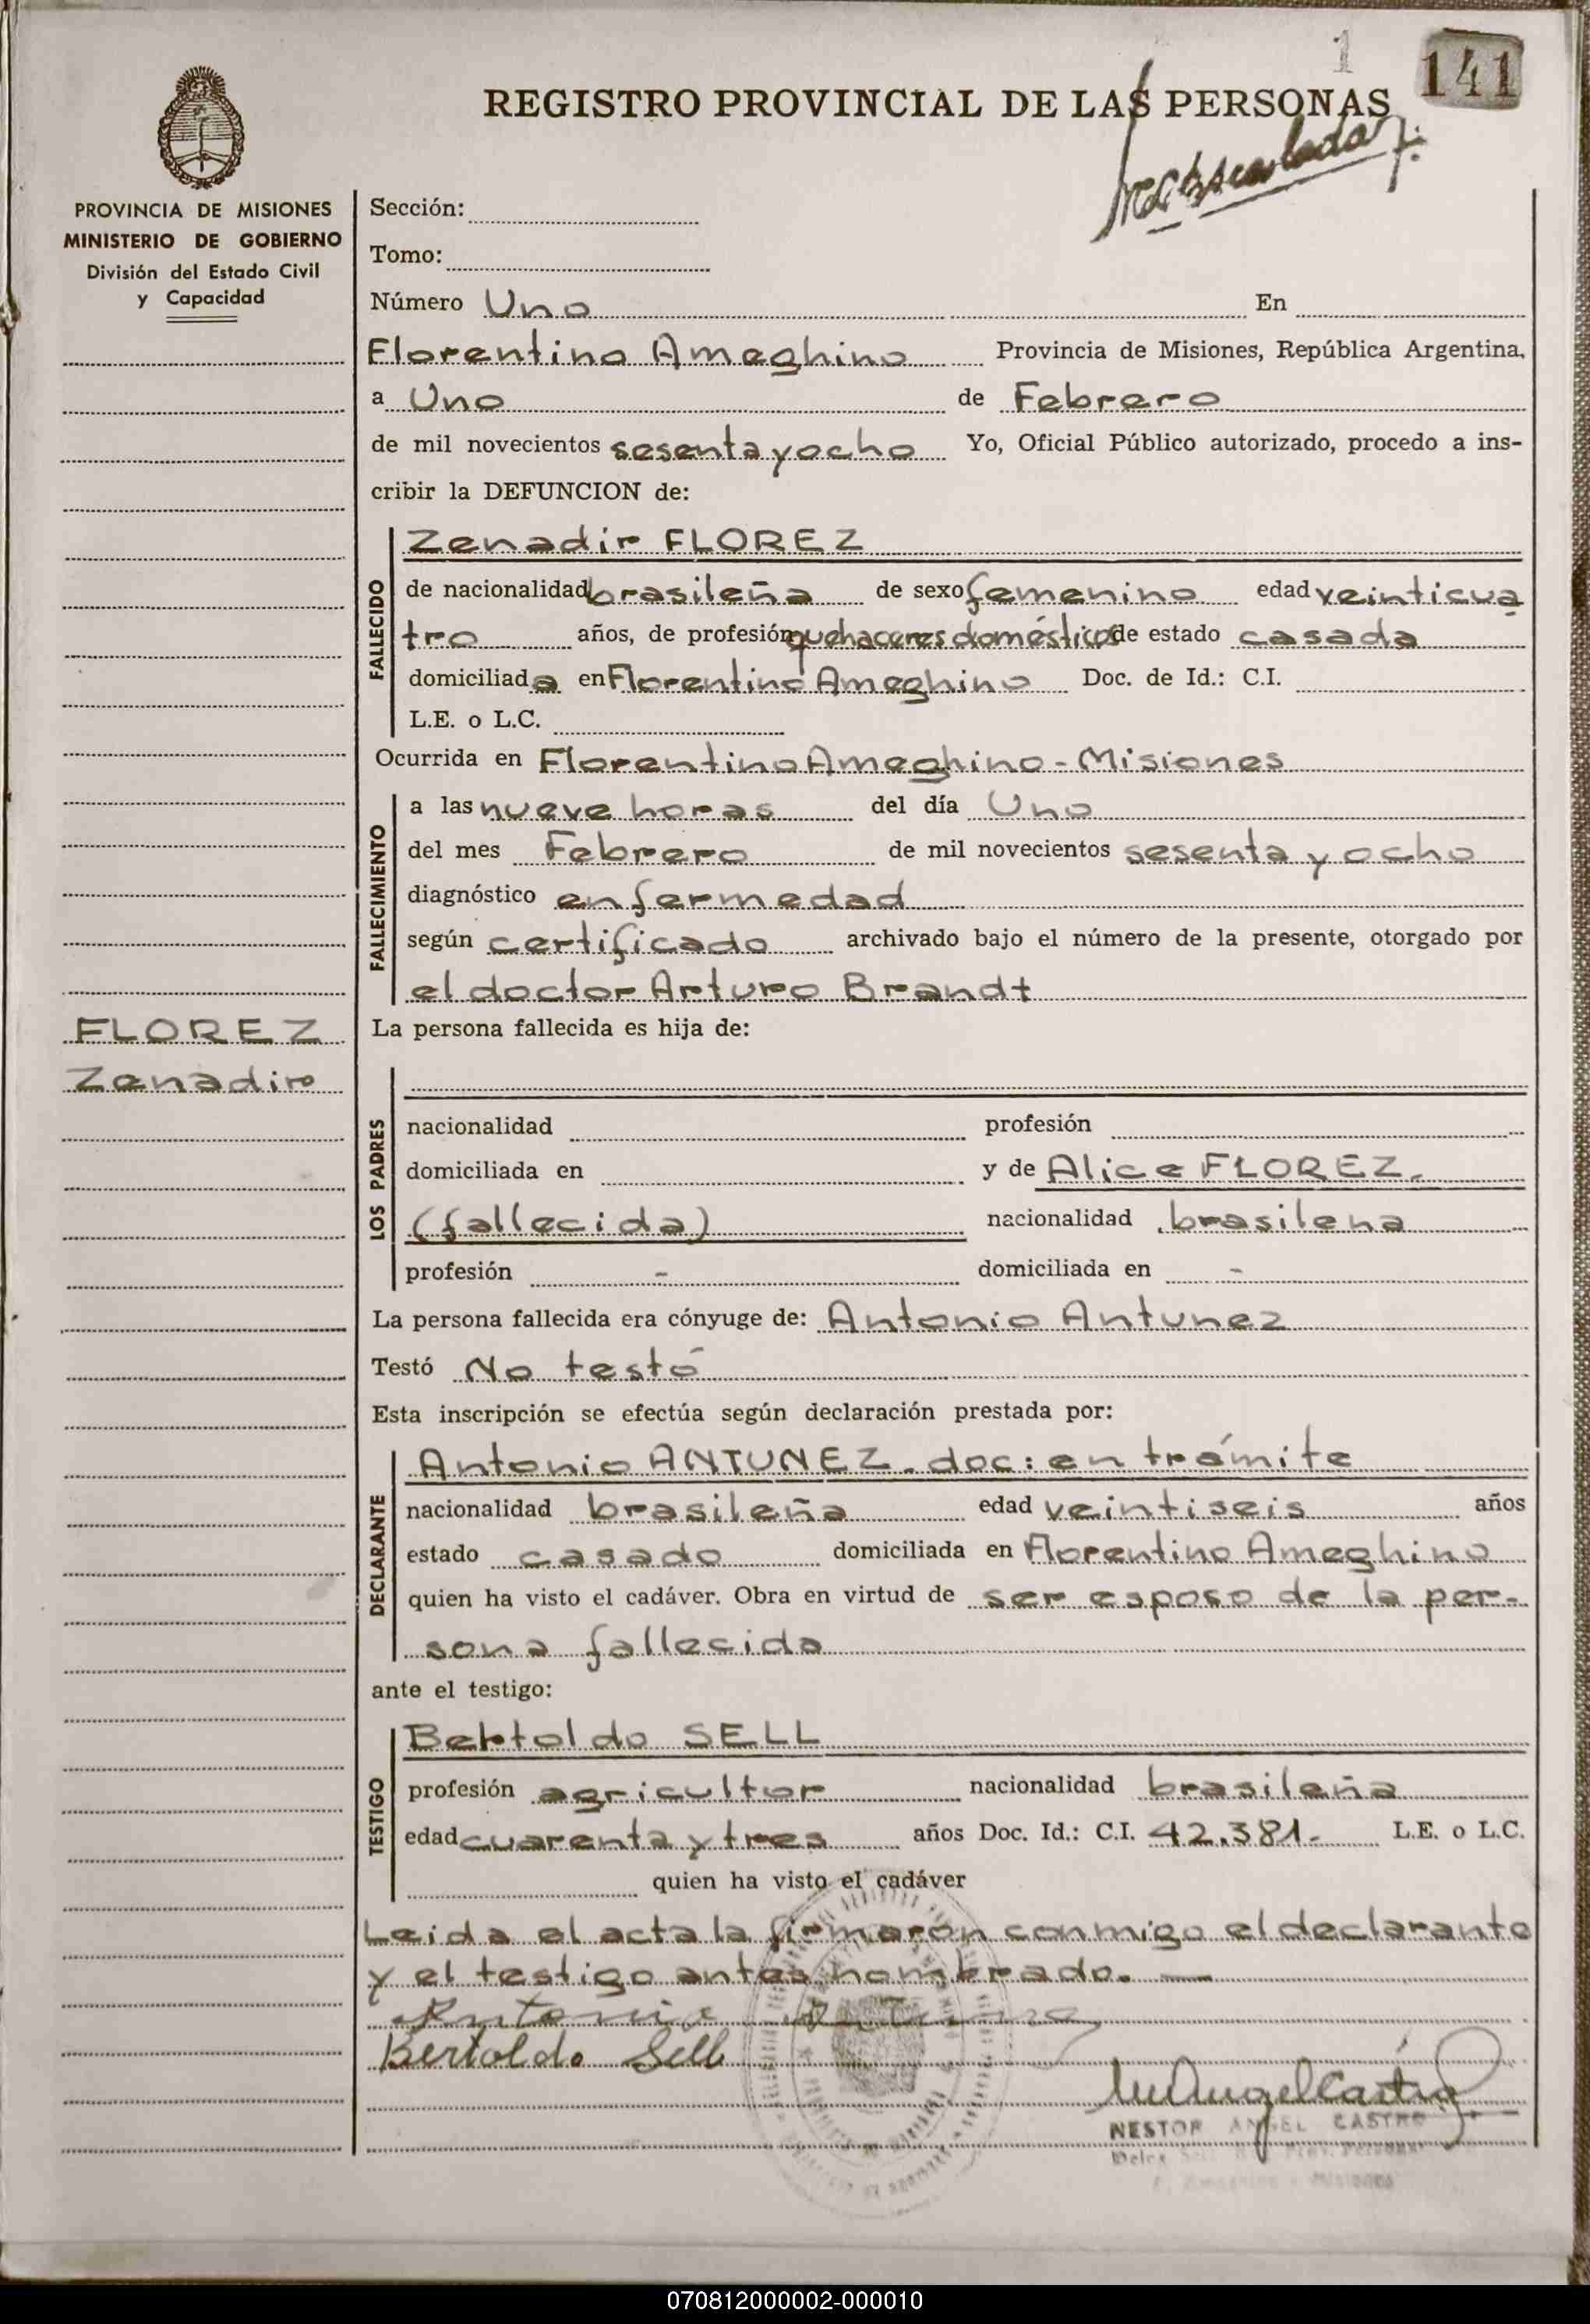 1
141
REGISTRO PROVINCIAL DE LAS PERSONAS
PROVINCIA DE MISIONES
MINISTERIO DE GOBIERNO
División del Estado Civil
y Capacidad
Sección:
Tomo:
Número Uno En
Florentino Ameghino Provincia de Misiones, República Argentina,
a Uno de Febrero
de mil novecientos sesenta y ocho Yo, Oficial Público autorizado, procedo a ins-
cribir la DEFUNCION de:
FALLECIDO
Zenadir FLOREZ
de nacionalidad brasileña de sexo femenino edad veinticua
tro años, de profesión quehaceres domésticos de estado casada
domiciliada en Florentino Ameghino Doc. de Id.: C.I.
L.E. o L.C.
Ocurrida en Florentino Ameghino - Misiones
FALLECIMIENTO
a las nueve horas del día Uno
del mes Febrero de mil novecientos sesenta y ocho
diagnóstico enfermedad
según certificado archivado bajo el número de la presente, otorgado por
el doctor Arturo Brandt
FLOREZ
Zenadir
La persona fallecida es hija de:
LOS PADRES
nacionalidad profesión
domiciliada en y de Alice FLOREZ.
(fallecida) nacionalidad brasilena
profesión - domiciliada en -
La persona fallecida era cónyuge de: Antonio Antunez
Testó No testó
Esta inscripción se efectúa según declaración prestada por:
DECLARANTE
Antonio ANTUNEZ. doc: en trámite
nacionalidad brasileña edad veintiseis años
estado casado domiciliada en Florentino Ameghino
quien ha visto el cadáver. Obra en virtud de ser esposo de la per-
sona fallecida
ante el testigo:
TESTIGO
Bertoldo SELL
profesión agricultor nacionalidad brasileña
edad cuarenta y tres años Doc. Id.: C.I. 42.381.- L.E. o L.C.
quien ha visto el cadáver
Leida el acta la firmarón conmigo el declarante
y el testigo antes nombrado. —
Antonio
Bertoldo Sell
NESTOR ANGEL CASTRO
070812000002-000010